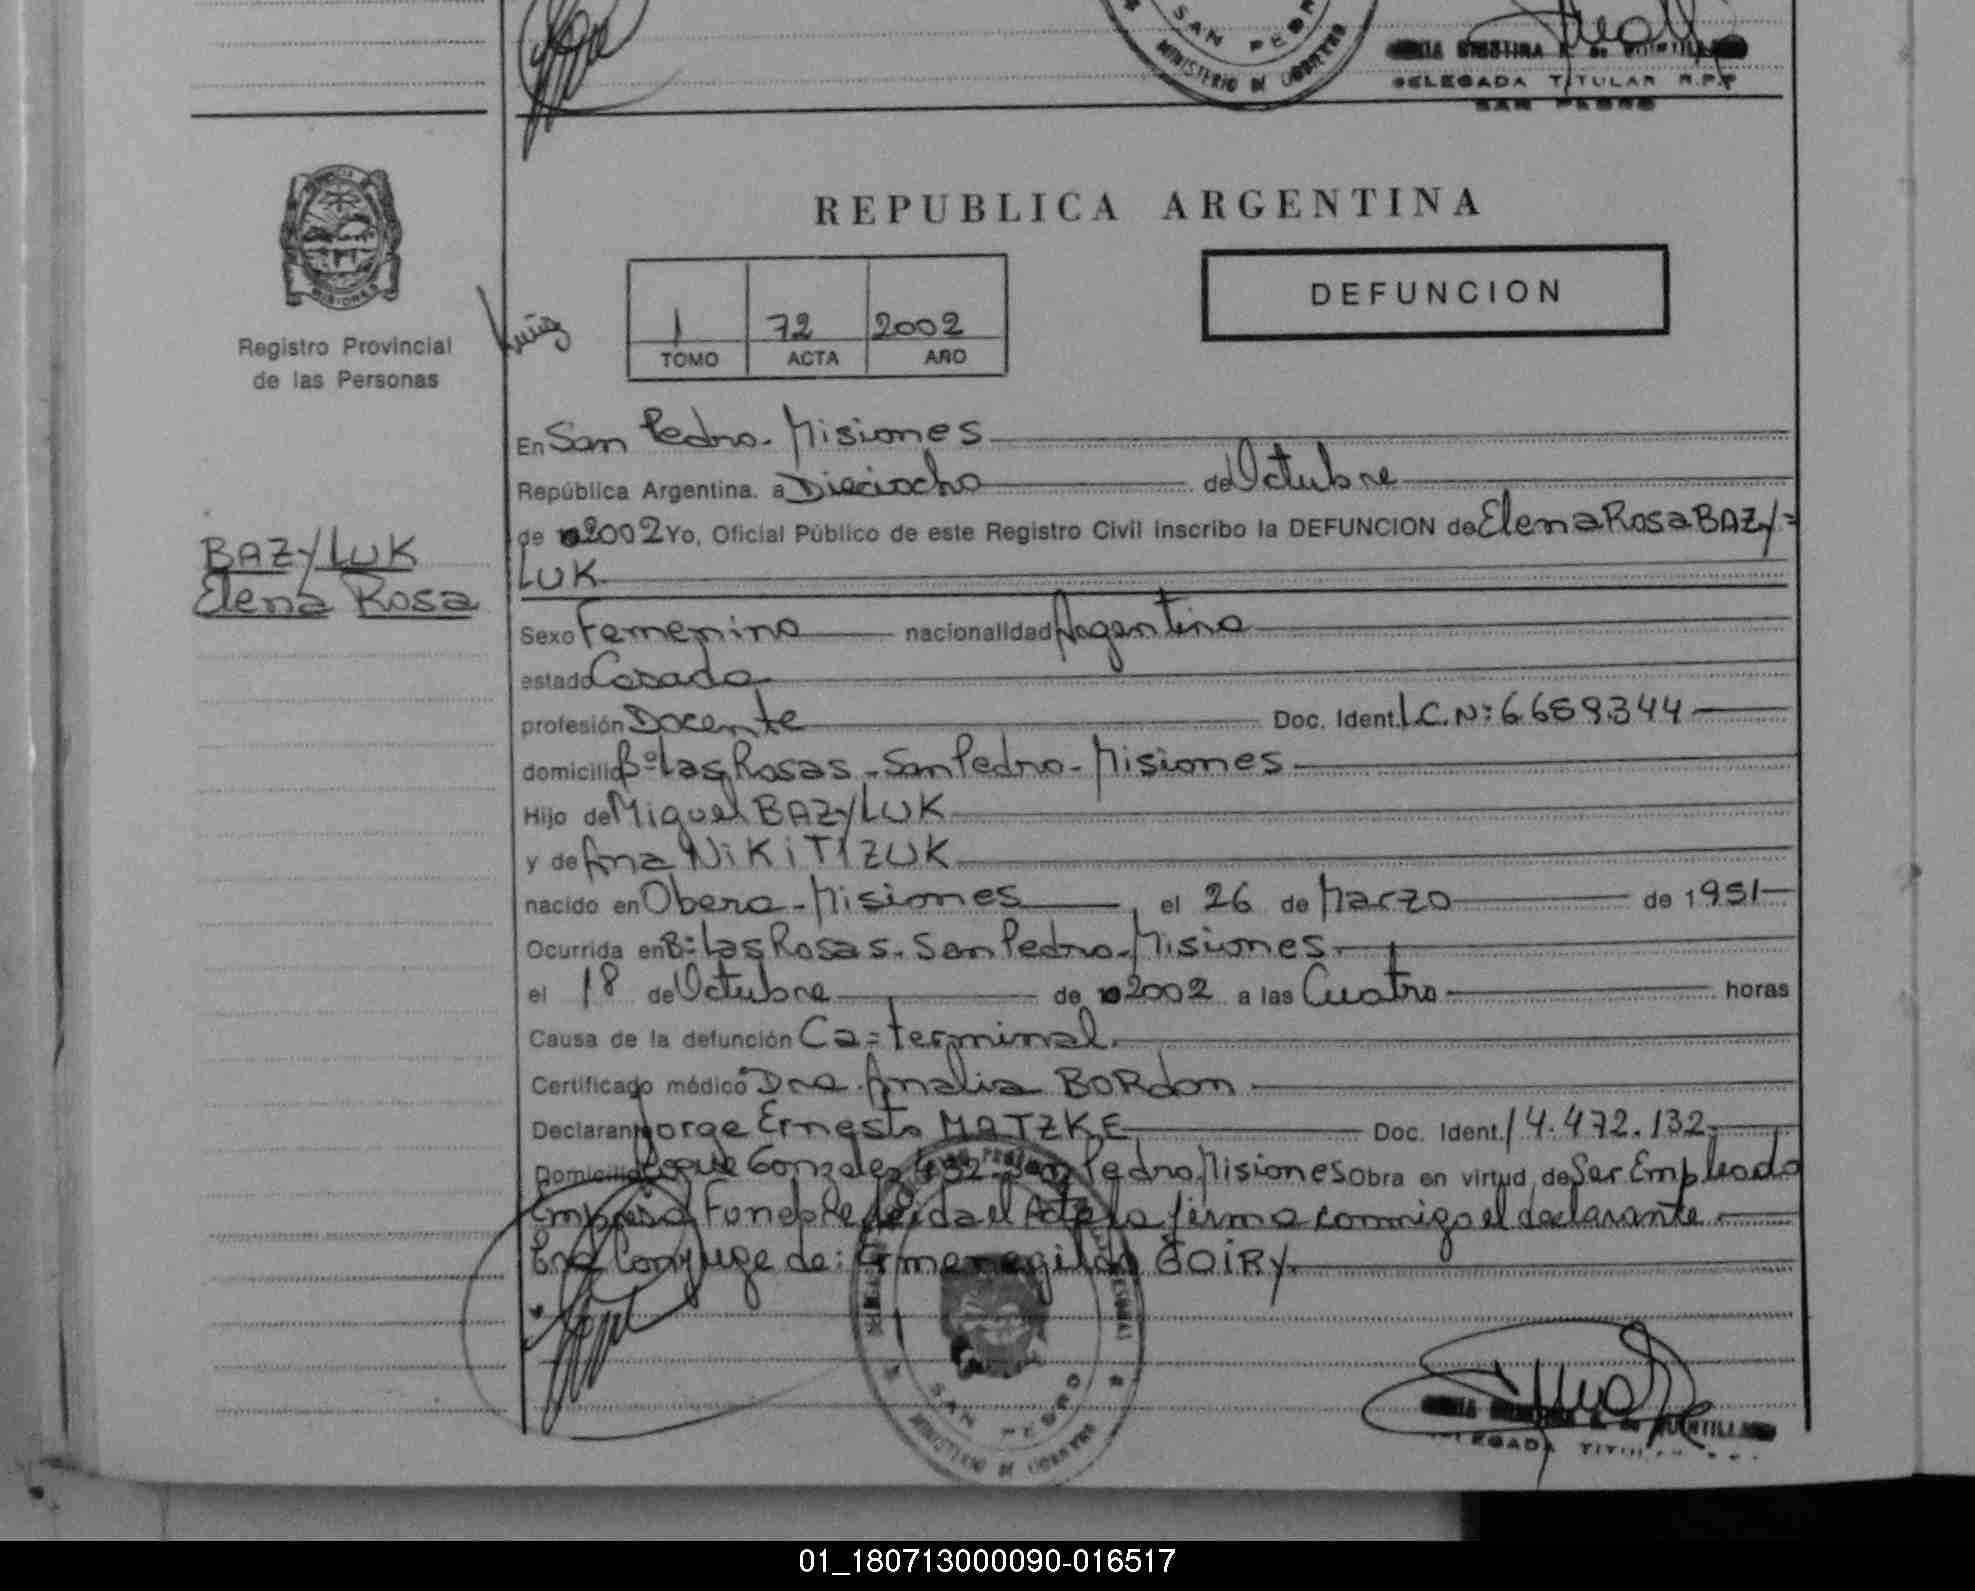 SAN PEDRO
MINISTERIO DE GOBIERNO
DELEGADA TITULAR R.P.P
SAN PEDRO
REPUBLICA ARGENTINA
DEFUNCION
1 72 2002
TOMO ACTA AÑO
Registro Provincial
de las Personas
BAZYLUK
Elena Rosa
En San Pedro - Misiones
República Argentina, a Dieciocho de Octubre
de 2002 Yo, Oficial Público de este Registro Civil inscribo la DEFUNCION de Elena Rosa BAZY=
LUK
Sexo Femenino nacionalidad Argentina
estado Casada
profesión Docente Doc. Ident. L.C. Nº 6.659.344
domicilio Bº Las Rosas - San Pedro - Misiones
Hijo de Miguel BAZYLUK
y de Ana NIKITIZUK
nacido en Obera - Misiones el 26 de Marzo de 1951
Ocurrida en Bº Las Rosas - San Pedro - Misiones
el 18 de Octubre de 2002 a las Cuatro horas
Causa de la defunción Ca= terminal
Certificado médico Dra Amalia BORdon
Declarante Jorge Ernesto MATZKE Doc. Ident. 14.472.132
Domicilio Roque Gonzalez San Pedro Misiones Obra en virtud de Ser Empleado
Empresa Funebre leida el Acta la firma conmigo el declarante
Era Conyuge de: Ermenegildo GOIRY
SAN PEDRO
MINISTERIO DE GOBIERNO
DELEGADA TITULAR
01_180713000090-016517